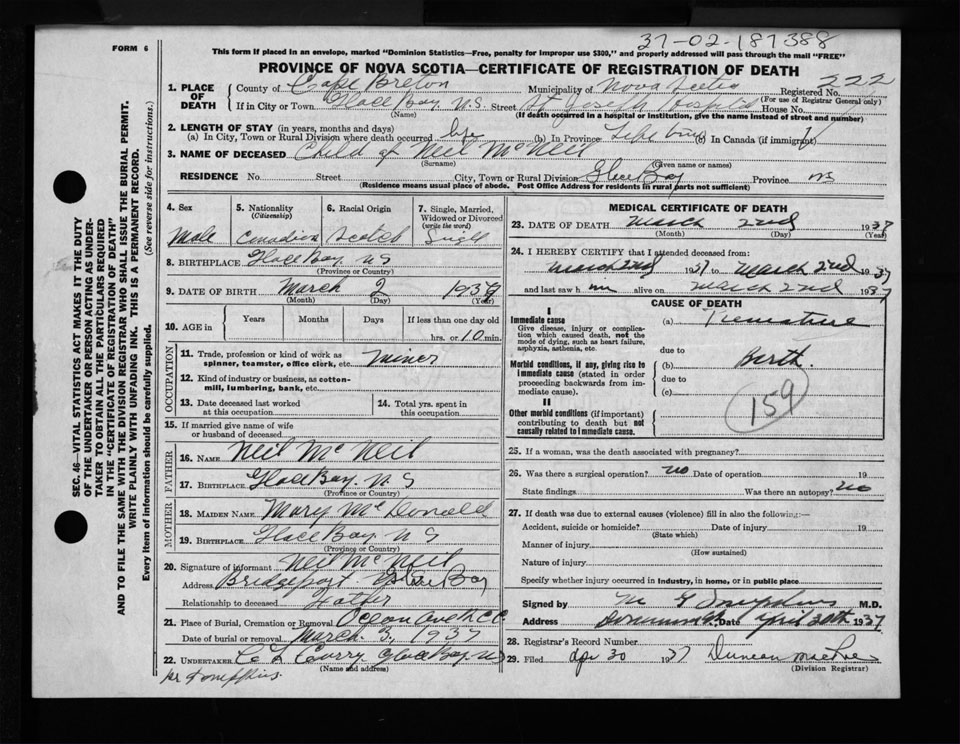 37-02-187388
FORM 6
This form if placed in an envelope, marked "Dominion Statistics—Free, penalty for improper use $300," and properly addressed will pass through the mail "FREE"
PROVINCE OF NOVA SCOTIA—CERTIFICATE OF REGISTRATION OF DEATH
1. PLACE OF DEATH
County of Cape Breton Municipality of Nova Scotia Registered No. 222
(For use of Registrar General only)
If in City or Town Glace Bay N.S. Street St Joseph Hospital House No.
(Name) (If death occurred in a hospital or institution, give the name instead of street and number)
2. LENGTH OF STAY (in years, months and days)
(a) In City, Town or Rural Division where death occurred life (b) In Province Life time (c) In Canada (if immigrant)
3. NAME OF DECEASED Child of Neil McNeil
(Surname) (Given name or names)
RESIDENCE No. Street City, Town or Rural Division Glace Bay Province NS
(Residence means usual place of abode. Post Office Address for residents in rural parts not sufficient)
4. Sex
Male
5. Nationality
(Citizenship)
Canadian
6. Racial Origin
Scotch
7. Single, Married, Widowed or Divorced
(write the word)
Single
8. BIRTHPLACE Glace Bay N S
(Province or Country)
9. DATE OF BIRTH March 2 1937
(Month) (Day) (Year)
10. AGE in Years Months Days If less than one day old
hrs. or 10 min.
OCCUPATION
11. Trade, profession or kind of work as spinner, teamster, office clerk, etc. Miner
12. Kind of industry or business, as cotton-mill, lumbering, bank, etc.
13. Date deceased last worked at this occupation
14. Total yrs. spent in this occupation
15. If married give name of wife or husband of deceased
FATHER
16. NAME Neil McNeil
17. BIRTHPLACE Glace Bay N S
(Province or Country)
MOTHER
18. MAIDEN NAME Mary McDonald
19. BIRTHPLACE Glace Bay N S
(Province or Country)
20. Signature of informant Neil McNeil
Address Bridgeport Glace Bay
Relationship to deceased Father
21. Place of Burial, Cremation or Removal Ocean
Date of burial or removal March 3, 1937
22. UNDERTAKER C L Curry Glace Bay NS
(Name and address)
MEDICAL CERTIFICATE OF DEATH
23. DATE OF DEATH March 2nd 1937
(Month) (Day) (Year)
24. I HEREBY CERTIFY that I attended deceased from:
March 2nd 1937 to March 2nd 1937
and last saw h im alive on March 2nd 1937
CAUSE OF DEATH
I
Immediate cause
Give disease, injury or complication which caused death, not the mode of dying, such as heart failure, asphyxia, asthenia, etc.
(a) Premature
due to
Morbid conditions, if any, giving rise to immediate cause (stated in order proceeding backwards from immediate cause).
(b) Birth.
due to
(c)
II
Other morbid conditions (if important) contributing to death but not causally related to immediate cause.
159
25. If a woman, was the death associated with pregnancy?
26. Was there a surgical operation? no Date of operation 19
State findings Was there an autopsy? no
27. If death was due to external causes (violence) fill in also the following:—
Accident, suicide or homicide? Date of injury 19
(State which)
Manner of injury
(How sustained)
Nature of injury
Specify whether injury occurred in industry, in home, or in public place
Signed by M G Tompkins M.D.
Address Dominion Date April 30th 1937
28. Registrar's Record Number
29. Filed Apr 30 1937 Duncan
(Division Registrar)
per Tompkins.
SEC. 46—VITAL STATISTICS ACT MAKES IT THE DUTY
OF THE UNDERTAKER OR PERSON ACTING AS UNDER-
TAKER TO OBTAIN ALL THE PARTICULARS REQUIRED
IN THE "CERTIFICATE OF REGISTRATION OF DEATH"
AND TO FILE THE SAME WITH THE DIVISION REGISTRAR WHO SHALL ISSUE THE BURIAL PERMIT.
WRITE PLAINLY WITH UNFADING INK. THIS IS A PERMANENT RECORD.
Every item of information should be carefully supplied. (See reverse side for instructions.)